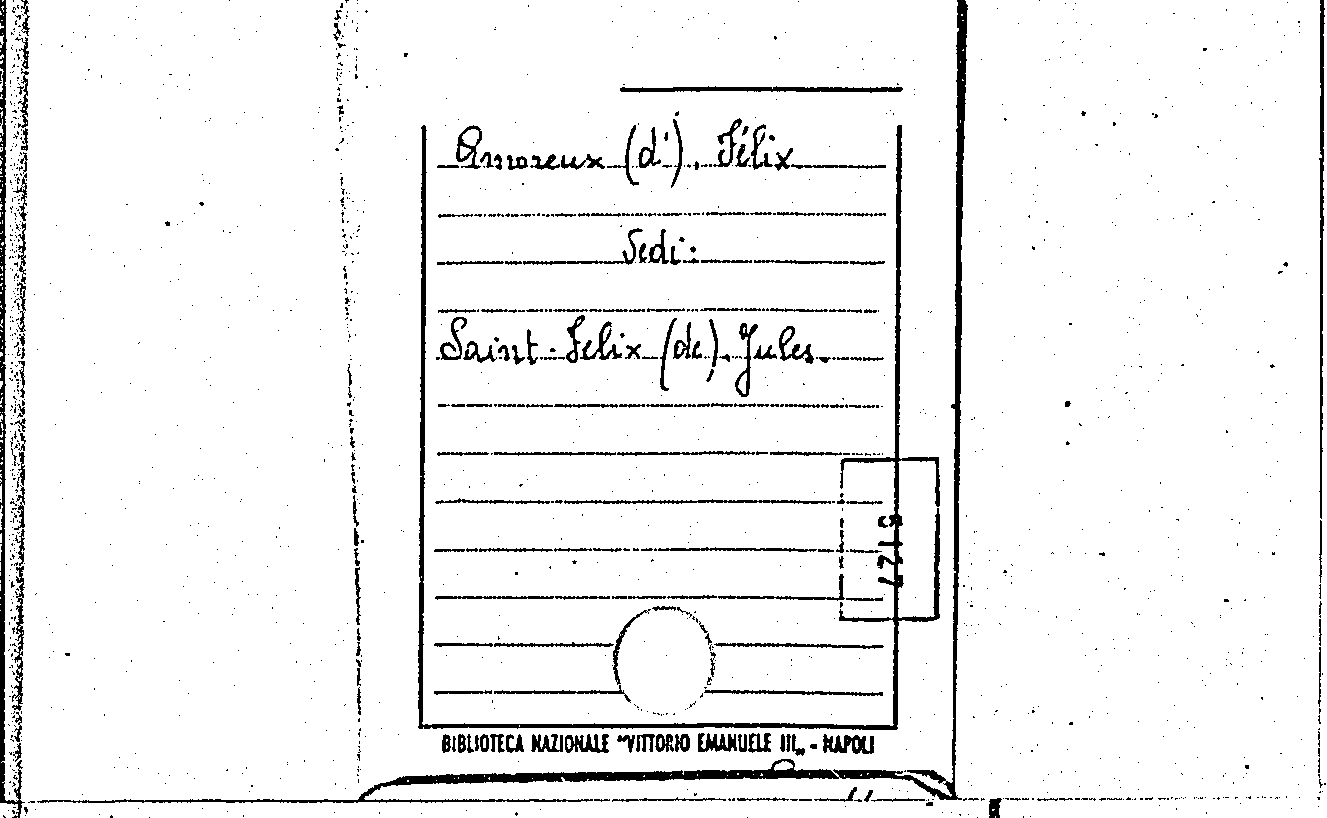 Amoreux (d'), Félix
Vedi:
Saint-Felix (de), Jules.
5127
BIBLIOTECA NAZIONALE "VITTORIO EMANUELE III„ - NAPOLI